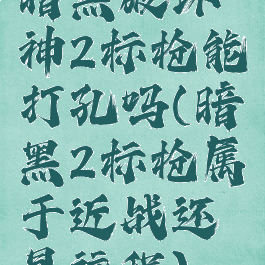 暗黑破坏
神2标枪能
打孔吗(暗
黑2标枪属
于近战还
是远程)